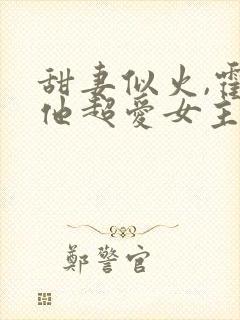 甜妻似火,霍
他超愛女主
鄭警官